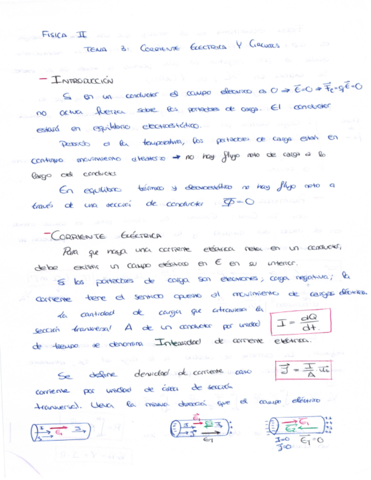 FISICA II
TEMA 3: CORRIENTE ELECTRICA Y CIRCUITOS
- INTRODUCCIÓN
Si en un conductor el campo eléctrico es 0 → E⃗=0 → F⃗e=qE⃗=0
no actua fuerza sobre los portadores de carga. El conductor
estará en equilibrio electrostático.
Debido a la temperatura, los portadores de carga están en
continuo movimiento aleatorio → no hay flujo neto de carga a lo
largo del conductor
En equilibrio térmico y electrostático no hay flujo neto a
través de una sección de conductor =0
- CORRIENTE ELÉCTRICA
Para que haya una corriente eléctrica neta en un conductor,
debe existir un campo eléctrico en E en su interior.
Si los portadores de carga son electrones, carga negativa; la
corriente tiene el sentido opuesto al movimiento de cargas eléctricas
La cantidad de carga que atraviesa la
sección transversal A de un conductor por unidad I = dQ/dt
de tiempo se denomina Intensidad de corriente eléctrica.
Se define densidad de corriente como J⃗ = I/A
corriente por unidad de área de sección
transversal. Lleva la misma dirección que el campo eléctrico